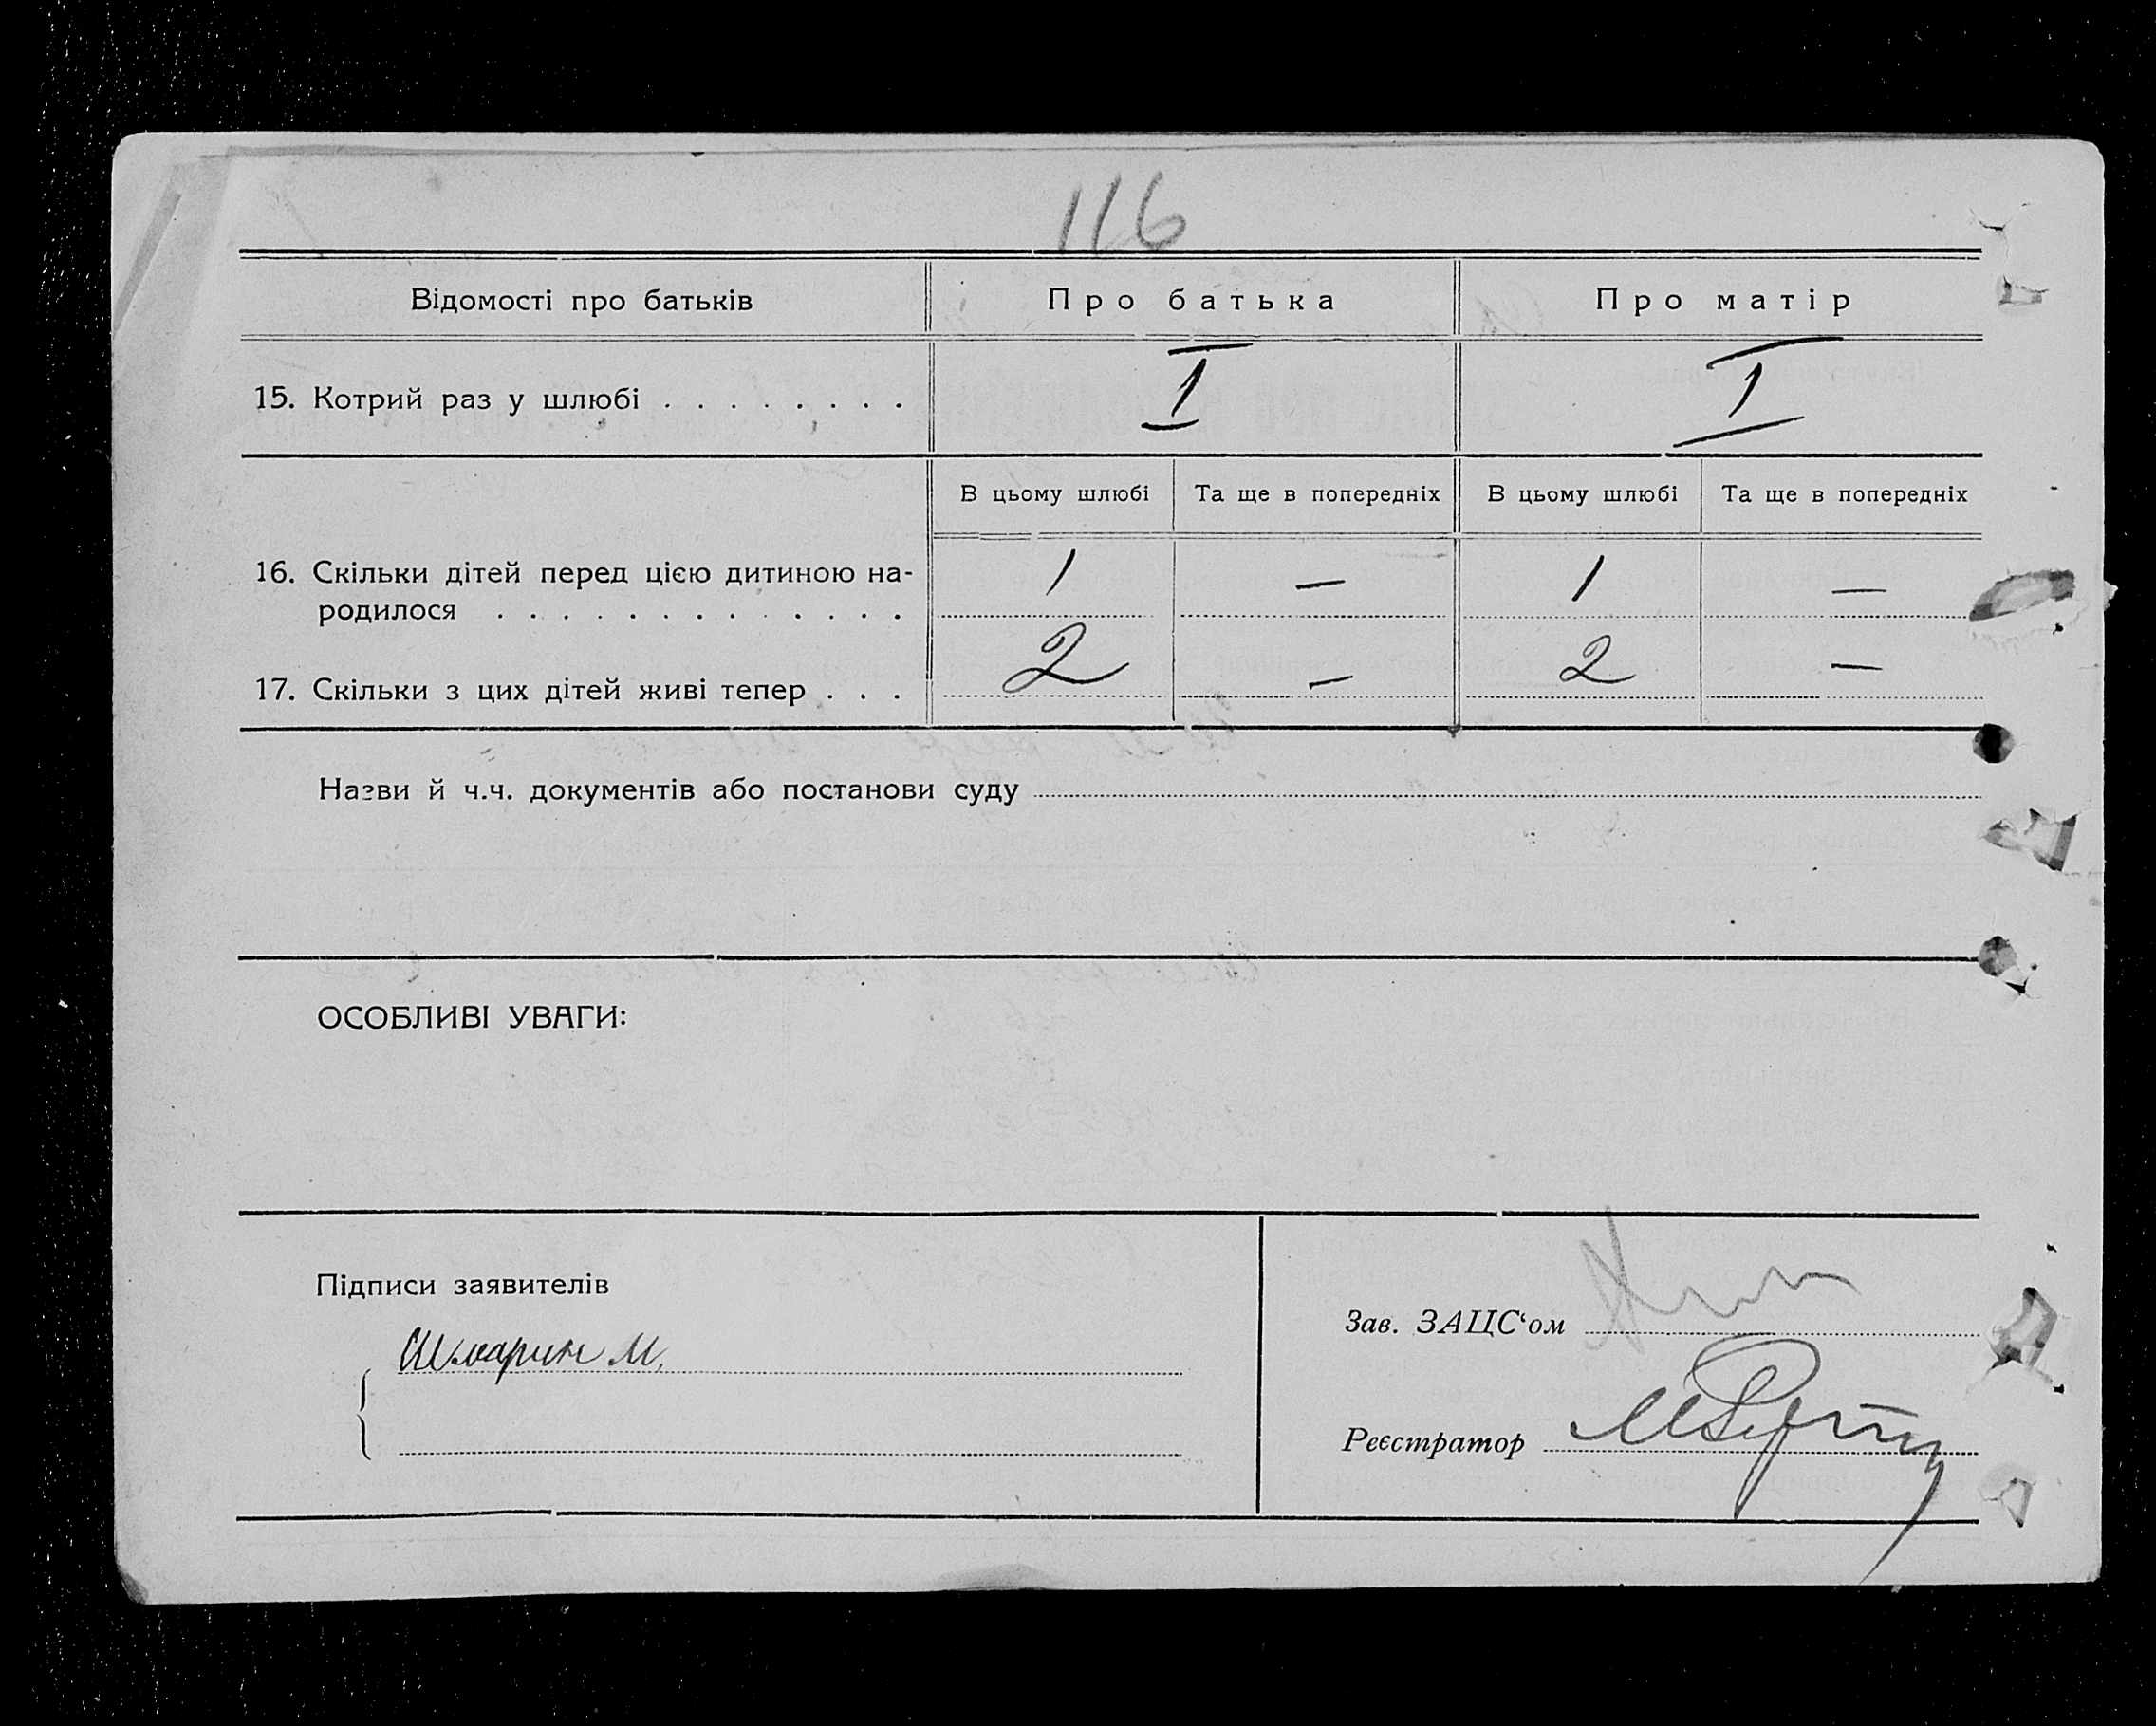 116
Відомості про батьків Про батька Про матір
15. Котрий раз у шлюбі . . . . . . . . I I
В цьому шлюбі Та ще в попередніх В цьому шлюбі Та ще в попередніх
16. Скільки дітей перед цією дитиною на-
родилося . . . . . . . . . . . . . 1 — 1 —
17. Скільки з цих дітей живі тепер . . . 2 — 2 —
Назви й ч.ч. документів або постанови суду
ОСОБЛИВІ УВАГИ:
Підписи заявителів
Шмарин М.
Зав. ЗАЦС‘ом
Реєстратор